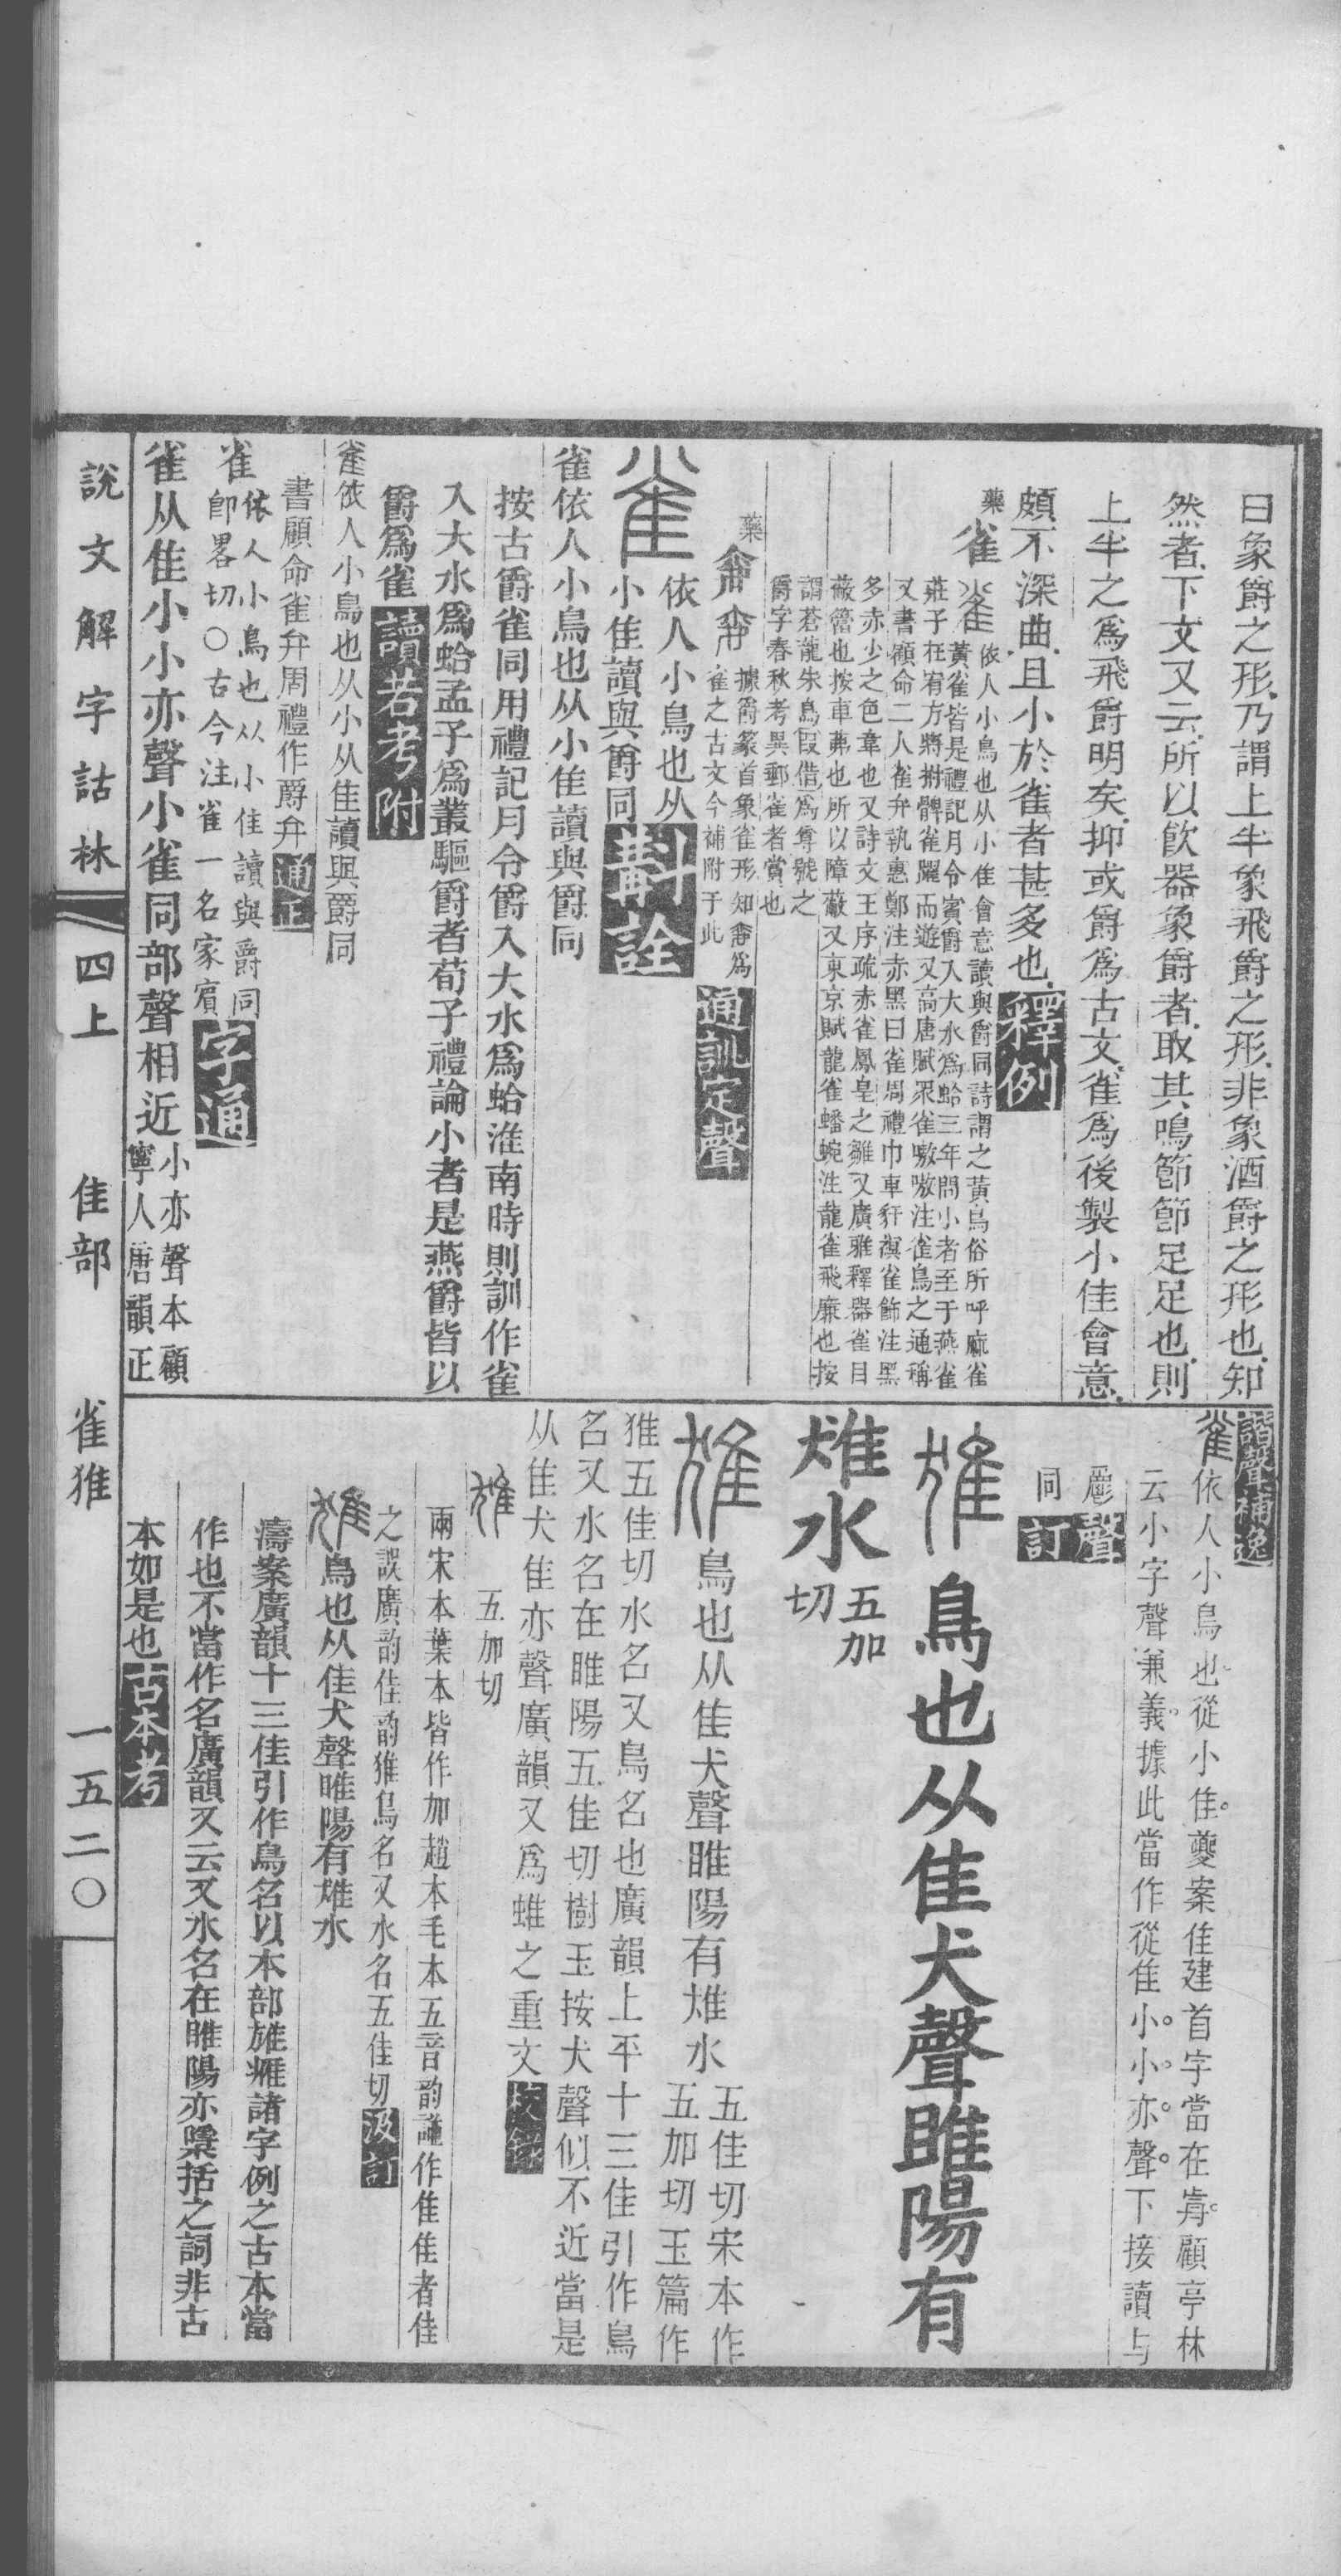 曰象爵之形乃謂上半象飛爵之形非象酒爵之形也知
然者下文又云所以飲器象爵者取其鳴節節足足也則
上半之爲飛爵明矣抑或爵爲古文雀爲後製小隹會意
頗不深曲且小於雀者甚多也釋例
藥
雀
雀依人小鳥也从小隹會意讀與爵同詩謂之黃鳥俗所呼麻雀
黃雀皆是禮記月令賓爵入大水爲蛤三年問小者至于燕雀
莊子在宥方將拊髀雀躍而遊又高唐賦眾雀嗷嗷注雀鳥之通稱
又書顧命二人雀弁執惠鄭注赤黑曰雀周禮巾車豻𧜀雀飾注黑
多赤少之色韋也又詩文王序疏赤雀鳳皇之雛又廣雅釋器雀目
蔽簹也按車茀也所以障蔽又東京賦龍雀蟠蜿注龍雀飛廉也按
謂蒼龍朱鳥叚借爲尊號之
爵字春秋考異郵雀者賞也
藥
據爵篆首象雀形知爲
雀之古文今補附于此通訓定聲
雀
依人小鳥也从
小隹讀與爵同斠詮
雀依人小鳥也从小隹讀與爵同
按古爵雀同用禮記月令爵入大水爲蛤淮南時則訓作雀
入大水爲蛤孟子爲叢驅爵者荀子禮論小者是燕爵皆以
爵爲雀讀若考附
雀依人小鳥也从小从隹讀與爵同
書顧命雀弁周禮作爵弁通正
雀
依人小鳥也从小隹讀與爵同
卽畧切〇古今注雀一名家賓字通
雀从隹小小亦聲小雀同部聲相近
小亦聲本顧
寧人唐韻正
諧聲補逸
雀依人小鳥也從小隹夔案隹建首字當在歬顧亭林
云小字聲兼義據此當作從隹小小亦聲下接讀与
𩰫聲
同訂
䧹鳥也从隹犬聲睢陽有
雃水
五加
切
鳥也从隹犬聲睢陽有雃水
五佳切宋本作
五加切玉篇作
猚五佳切水名又鳥名也廣韻上平十三佳引作鳥
名又水名在睢陽五佳切樹玉按犬聲似不近當是
从隹犬隹亦聲廣韻又爲蜼之重文校錄
五加切
兩宋本葉本皆作加趙本毛本五音韵譜作隹隹者佳
之誤廣韵佳韵猚鳥名又水名五佳切汲訂
鳥也从隹犬聲睢陽有雃水
濤案廣韻十三佳引作鳥名以本部雄𤸰諸字例之古本當
作也不當作名廣韻又云又水名在睢陽亦檃括之詞非古
本如是也古本考
說文解字詁林
四上
隹部
雀猚
一五二〇